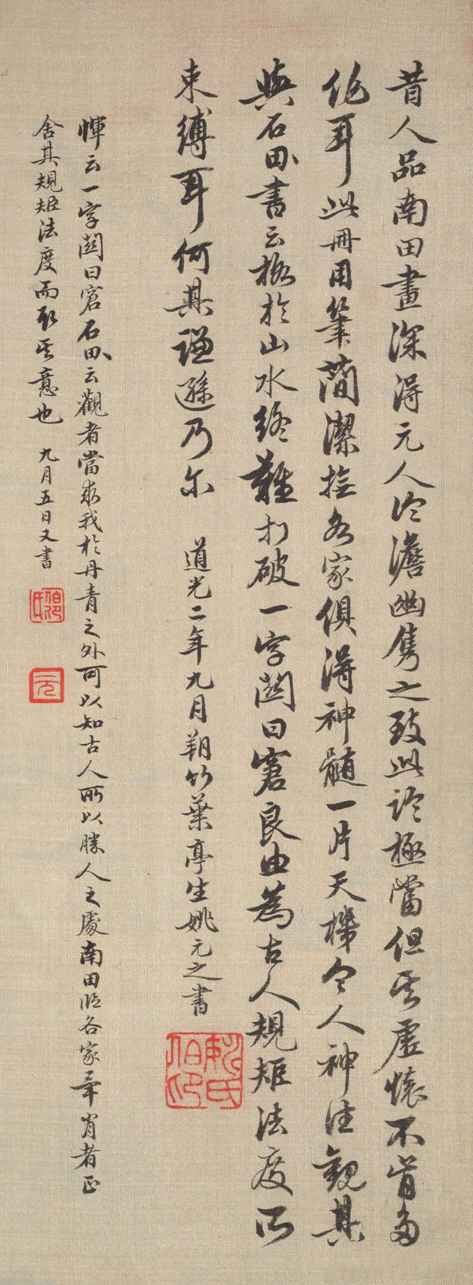 昔人品南田畫深得元人冷澹幽雋之致此論極當但其虛懷不肯多
件耳此冊用筆簡潔橅各家俱得神髓一片天機令人神往觀其
與石田書云格於山水終難打破一字關曰窘良由為古人規矩法度所
束縛耳何其謙遜乃尔 道光二年九月朔竹葉亭生姚元之書
惲云一字關曰窘石田云觀者當求我於丹青之外可以知古人所以勝人之處南田臨各家畢肖者正
舍其規矩法度而取其意也 九月五日又書
姚氏伯印
伯印
元